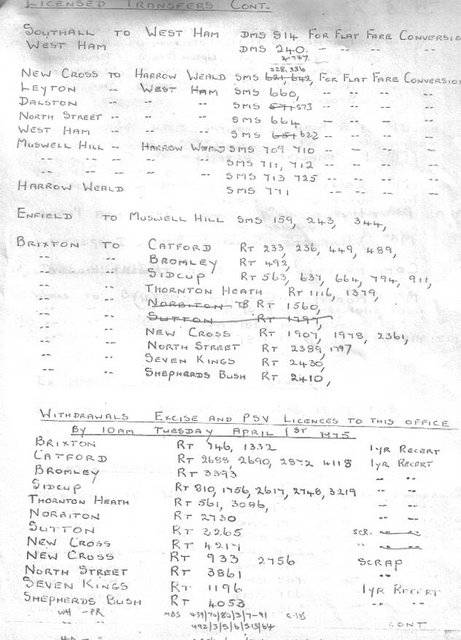 LICENSED TRANSFERS CONT.
SOUTHALL TO WEST HAM DMS 814 FOR FLAT FARE CONVERSION
WEST HAM DMS 240. -- -- -- --
328,336
NEW CROSS TO HARROW WEALD SMS 621, 642, FOR FLAT FARE CONVERSION
LEYTON -- WEST HAM SMS 660, -- -- -- --
DALSTON -- -- SMS 573 -- -- -- --
NORTH STREET -- -- -- SMS 664 -- -- -- --
WEST HAM -- -- SMS 651 622 -- -- -- --
MUSWELL HILL -- HARROW WEALD SMS 709 710 -- -- -- --
-- -- -- -- SMS 711, 712 -- -- -- --
-- -- -- -- SMS 713 725 -- -- -- --
HARROW WEALD SMS 771 -- -- -- --
ENFIELD TO MUSWELL HILL SMS 159, 243, 344,
BRIXTON TO CATFORD RT 233, 236, 449, 489,
-- -- BROMLEY RT 492,
-- -- SIDCUP RT 563, 637, 664, 794, 911,
-- -- THORNTON HEATH RT 1116, 1379,
-- -- NORBITON TB RT 1560,
-- -- SUTTON RT 1797,
-- -- NEW CROSS RT 1907, 1978, 2361,
-- -- NORTH STREET RT 2389, 1797
-- -- SEVEN KINGS RT 2430,
-- -- SHEPHERDS BUSH RT 2410,
WITHDRAWALS EXCISE AND PSV LICENCES TO THIS OFFICE
BY 10AM TUESDAY APRIL 1ST 1975
BRIXTON RT 746, 1332 1YR RECERT
CATFORD RT 2688, 2690, 2872 4118 1YR RECERT
BROMLEY RT 3393 -- --
SIDCUP RT 810, 1756, 2617, 2748, 3219 -- --
THORNTON HEATH RT 561, 3086, -- --
NORBITON RT 2730 -- --
SUTTON RT 3265 SCR.
NEW CROSS RT 4217
NEW CROSS RT 933 2756 SCRAP
NORTH STREET RT 3861 --
SEVEN KINGS RT 1196 1YR RECERT
SHEPHERDS BUSH RT 4053 -- --
WH - PR MBS
CONT